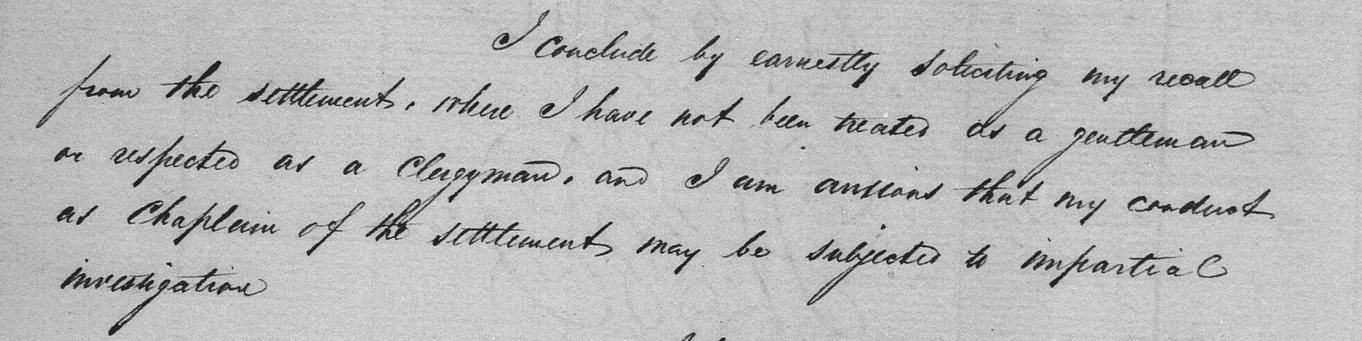 I conclude by earnestly soliciting my recall
from the settlement, where I have not been treated as a gentleman
or respected as a Clergyman, and I am anxious that my conduct
as Chaplain of the settlement may be subjected to impartial
investigation